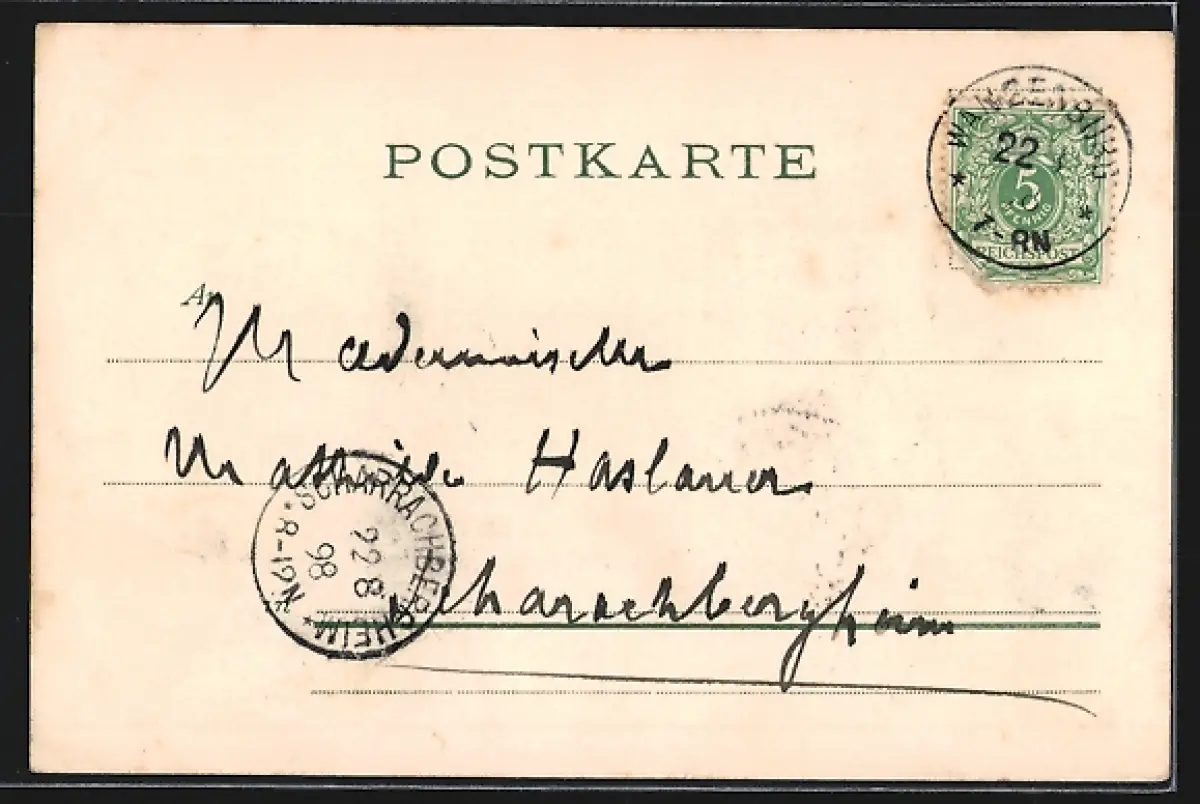 POSTKARTE
WANGENBURG
22 8
5
PFENNIG
REICHSPOST
7-8N
An
Mademoiselle
Mathilde Haslauer
Scharachbergheim
SCHARRACHBERGHEIM
22 8
98
8-12N